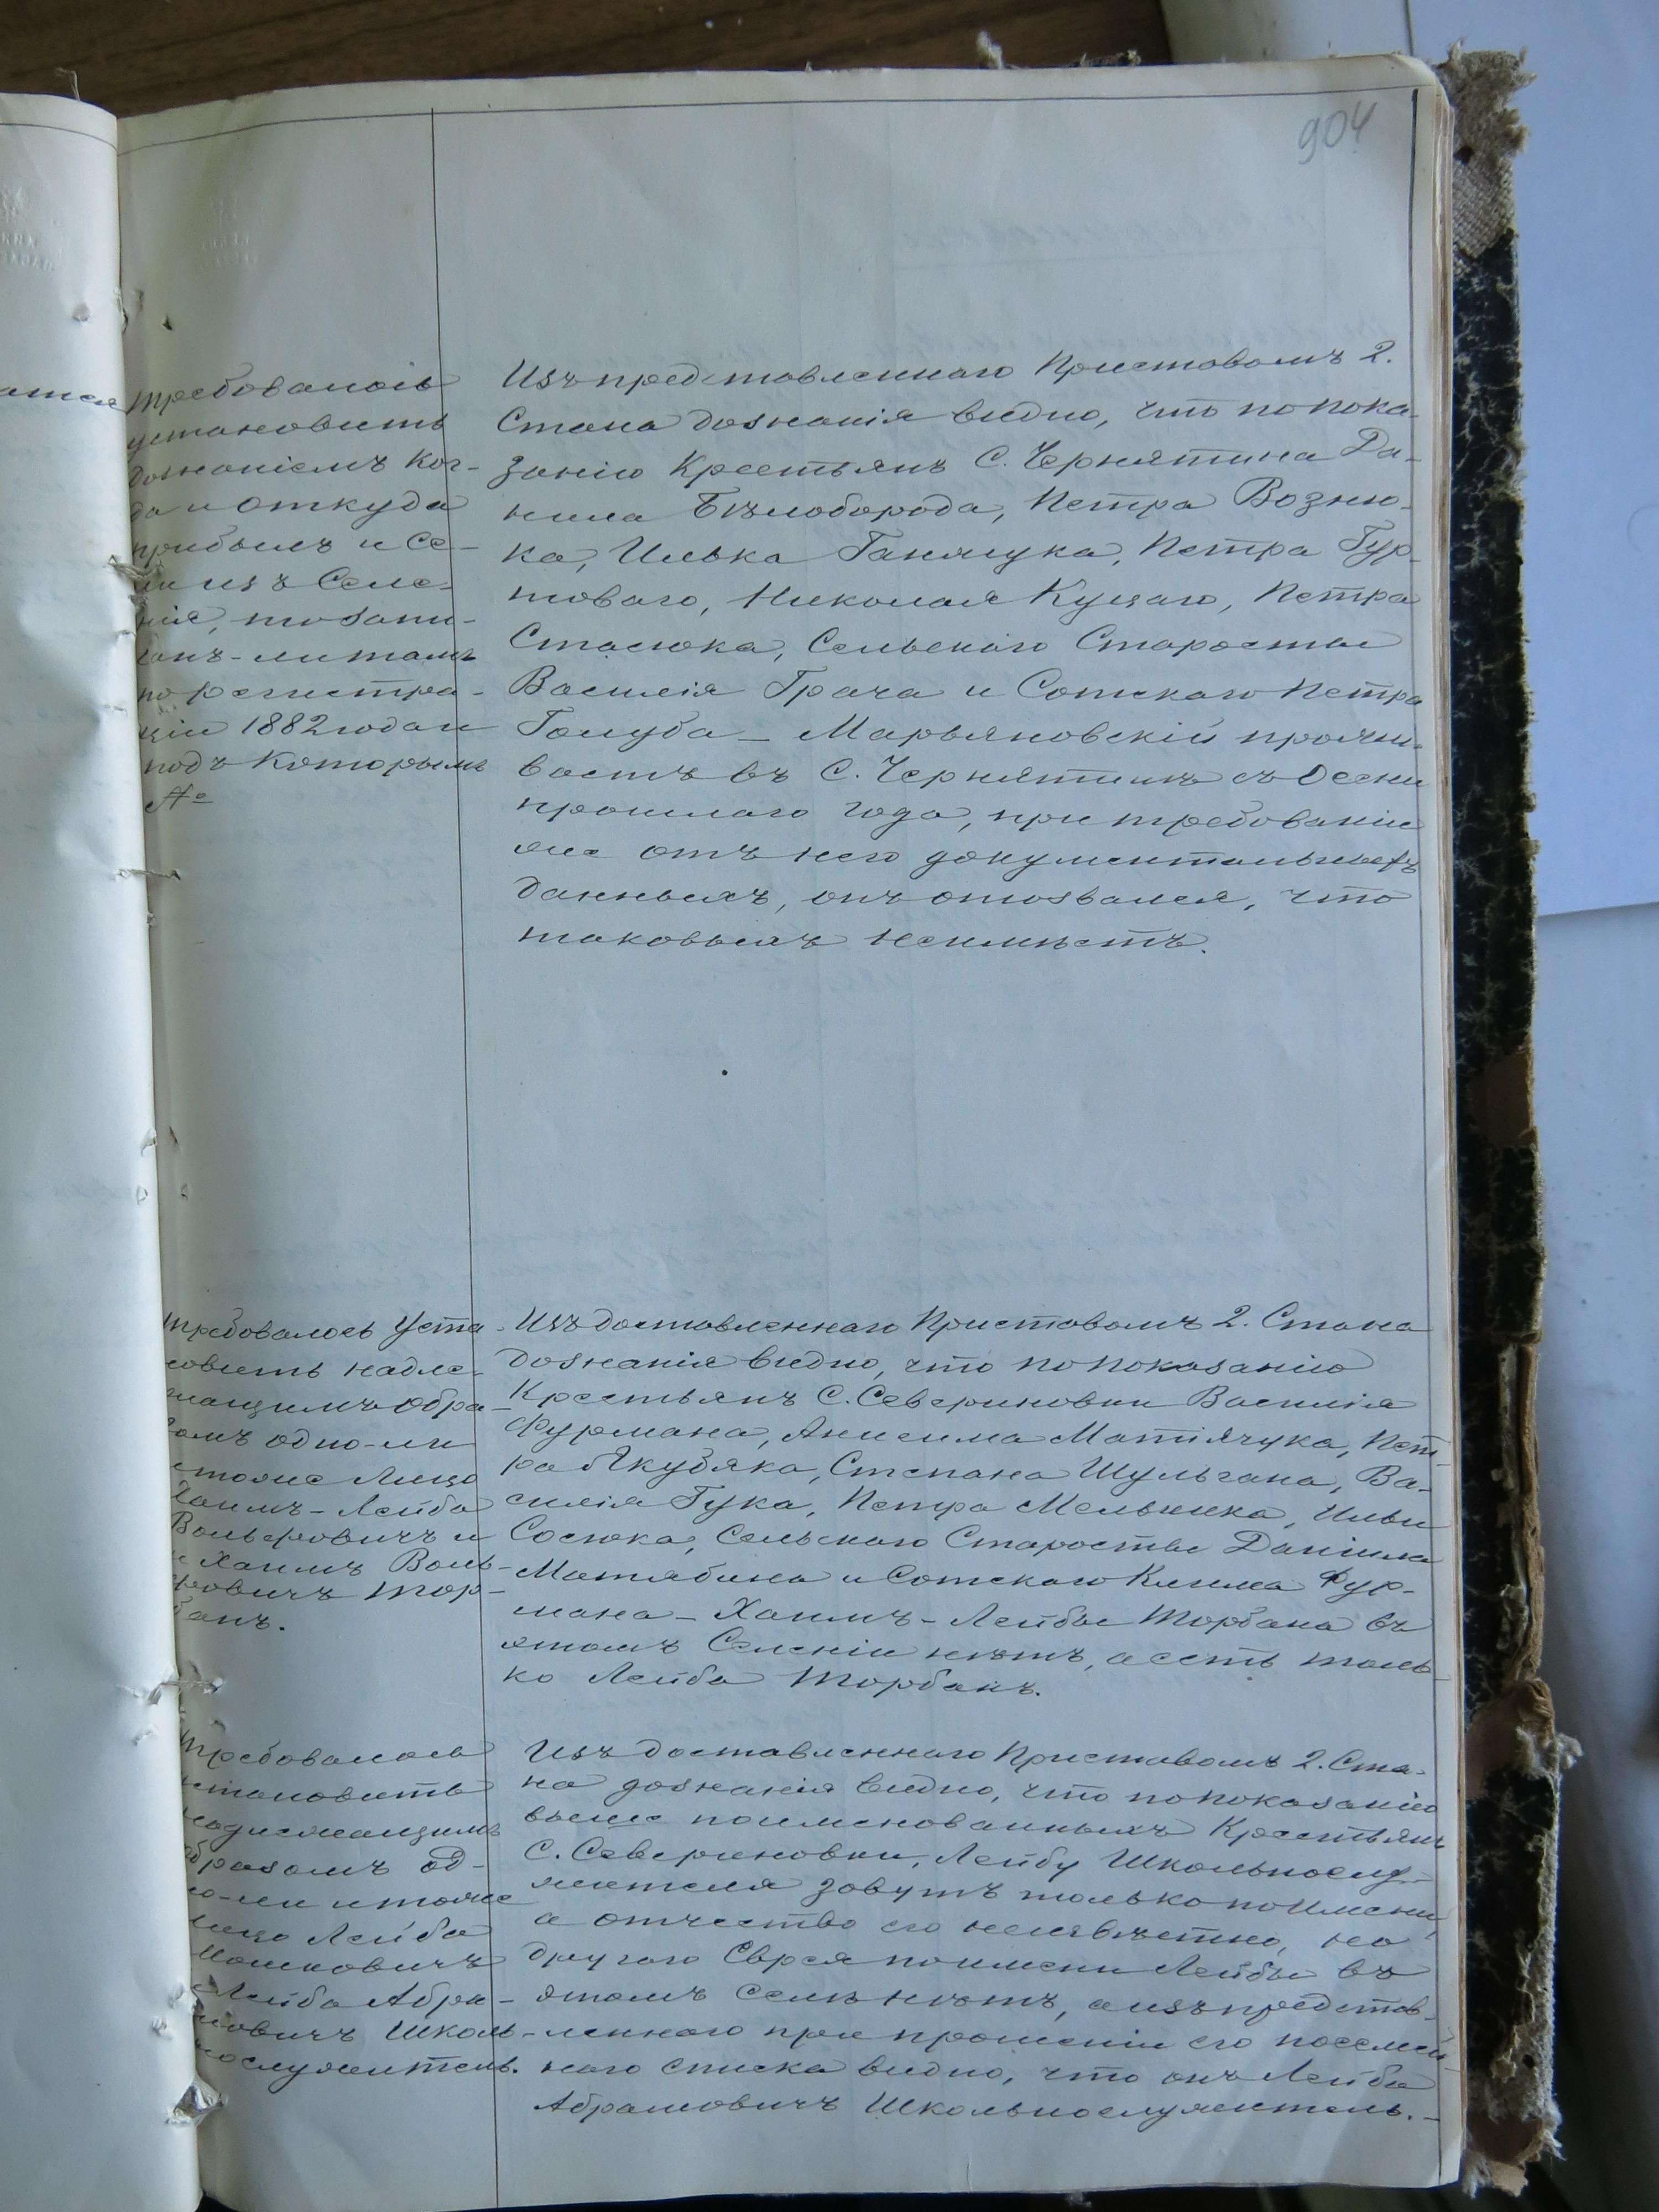 904
Требовалось
установить
дознаніемъ ког-
да и откуда
прибылъ и се-
изъ Селе-
нія, то записанъ-
ли тамъ
по регистра-
ціи 1882 года и
подъ которымъ
№
Изъ представленнаго Приставомъ 2.
Стана дознанія видно, что по пока-
занію Крестьянъ С. Чернятина Да-
нила Бѣлоборода, Петра Возню-
ка, Илька Ганчука, Петра Гур-
товаго, Николая Куцаго, Петра
Стасюка, Сельскаго Старосты
Василія Грача и Сотскаго Петра
Голуба – Марьяновскій прожи-
ваетъ въ С. Чернятинѣ съ Осени
прошлаго года, при требованіи
же отъ него документальныхъ
данныхъ, онъ отозвался, что
таковыхъ неимѣетъ.
Требовалось Уста-
новить надле-
жащимъ обра-
зомъ одно-ли
и тоже Лицо
Хаимъ-Лейба
Вольфовичъ и
и Хаимъ Воль-
фовичъ Тор-
банъ.
Изъ доставленнаго Приставомъ 2. Стана
дознанія видно, что по показанію
Крестьянъ С. Севериновки Василія
Фурмана, Анисима Матіячука, Пет-
ра Якубяка, Степана Шульгана, Ва-
силія Гука, Петра Мельника, Ильи
Сосюка, Сельскаго Старосты Даніила
Матябина и Сотскаго Клима Фур-
мана – Хаимъ-Лейбы Торбана въ
этомъ Селеніи нѣтъ, а есть толь-
ко Лейба Торбанъ.
Требовалось
установить
надлежащимъ
образомъ од-
но-ли и тоже
лицо Лейба
Мошковичъ
и Лейба Абра-
мовичъ Школь-
нослужитель.
Изъ доставленнаго Приставомъ 2. Ста-
на дознанія видно, что по показанію
выше поименованныхъ Крестьянъ
С. Севериновки, Лейбу Школьнослу-
жителя зовутъ только по Имени,
а отчество его неизвѣстно, но
другаго Еврея по имени Лейбы въ
этомъ селѣ нѣтъ, а изъ представ-
леннаго при прошеніи его посемей-
наго списка видно, что онъ Лейба
Абрамовичъ Школьнослужитель. –